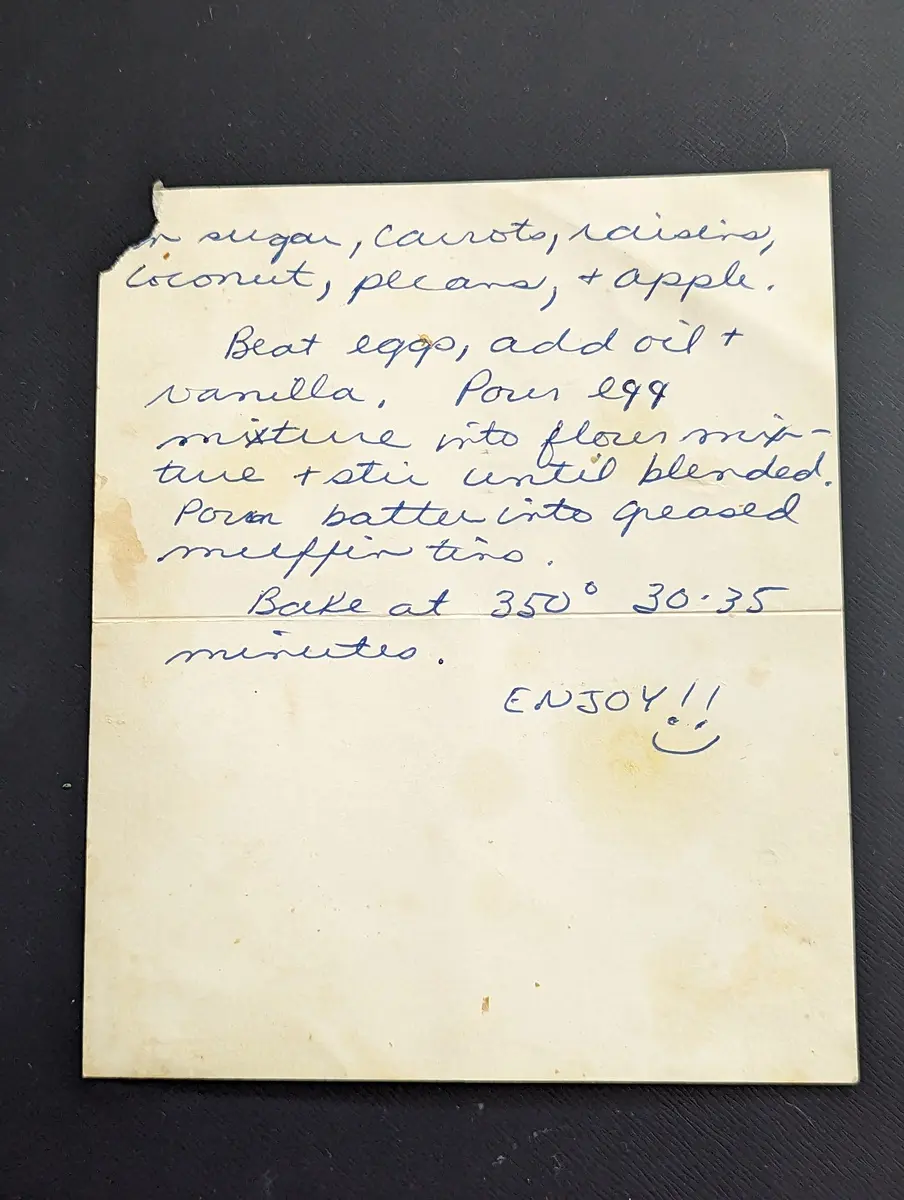 sugar, carrots, raisins,
coconut, pecans, + apple.
Beat eggs, add oil +
vanilla. Pour egg
mixture into flour mix-
ture + stir until blended.
Pour batter into greased
muffin tins.
Bake at 350° 30-35
minutes.
ENJOY!!